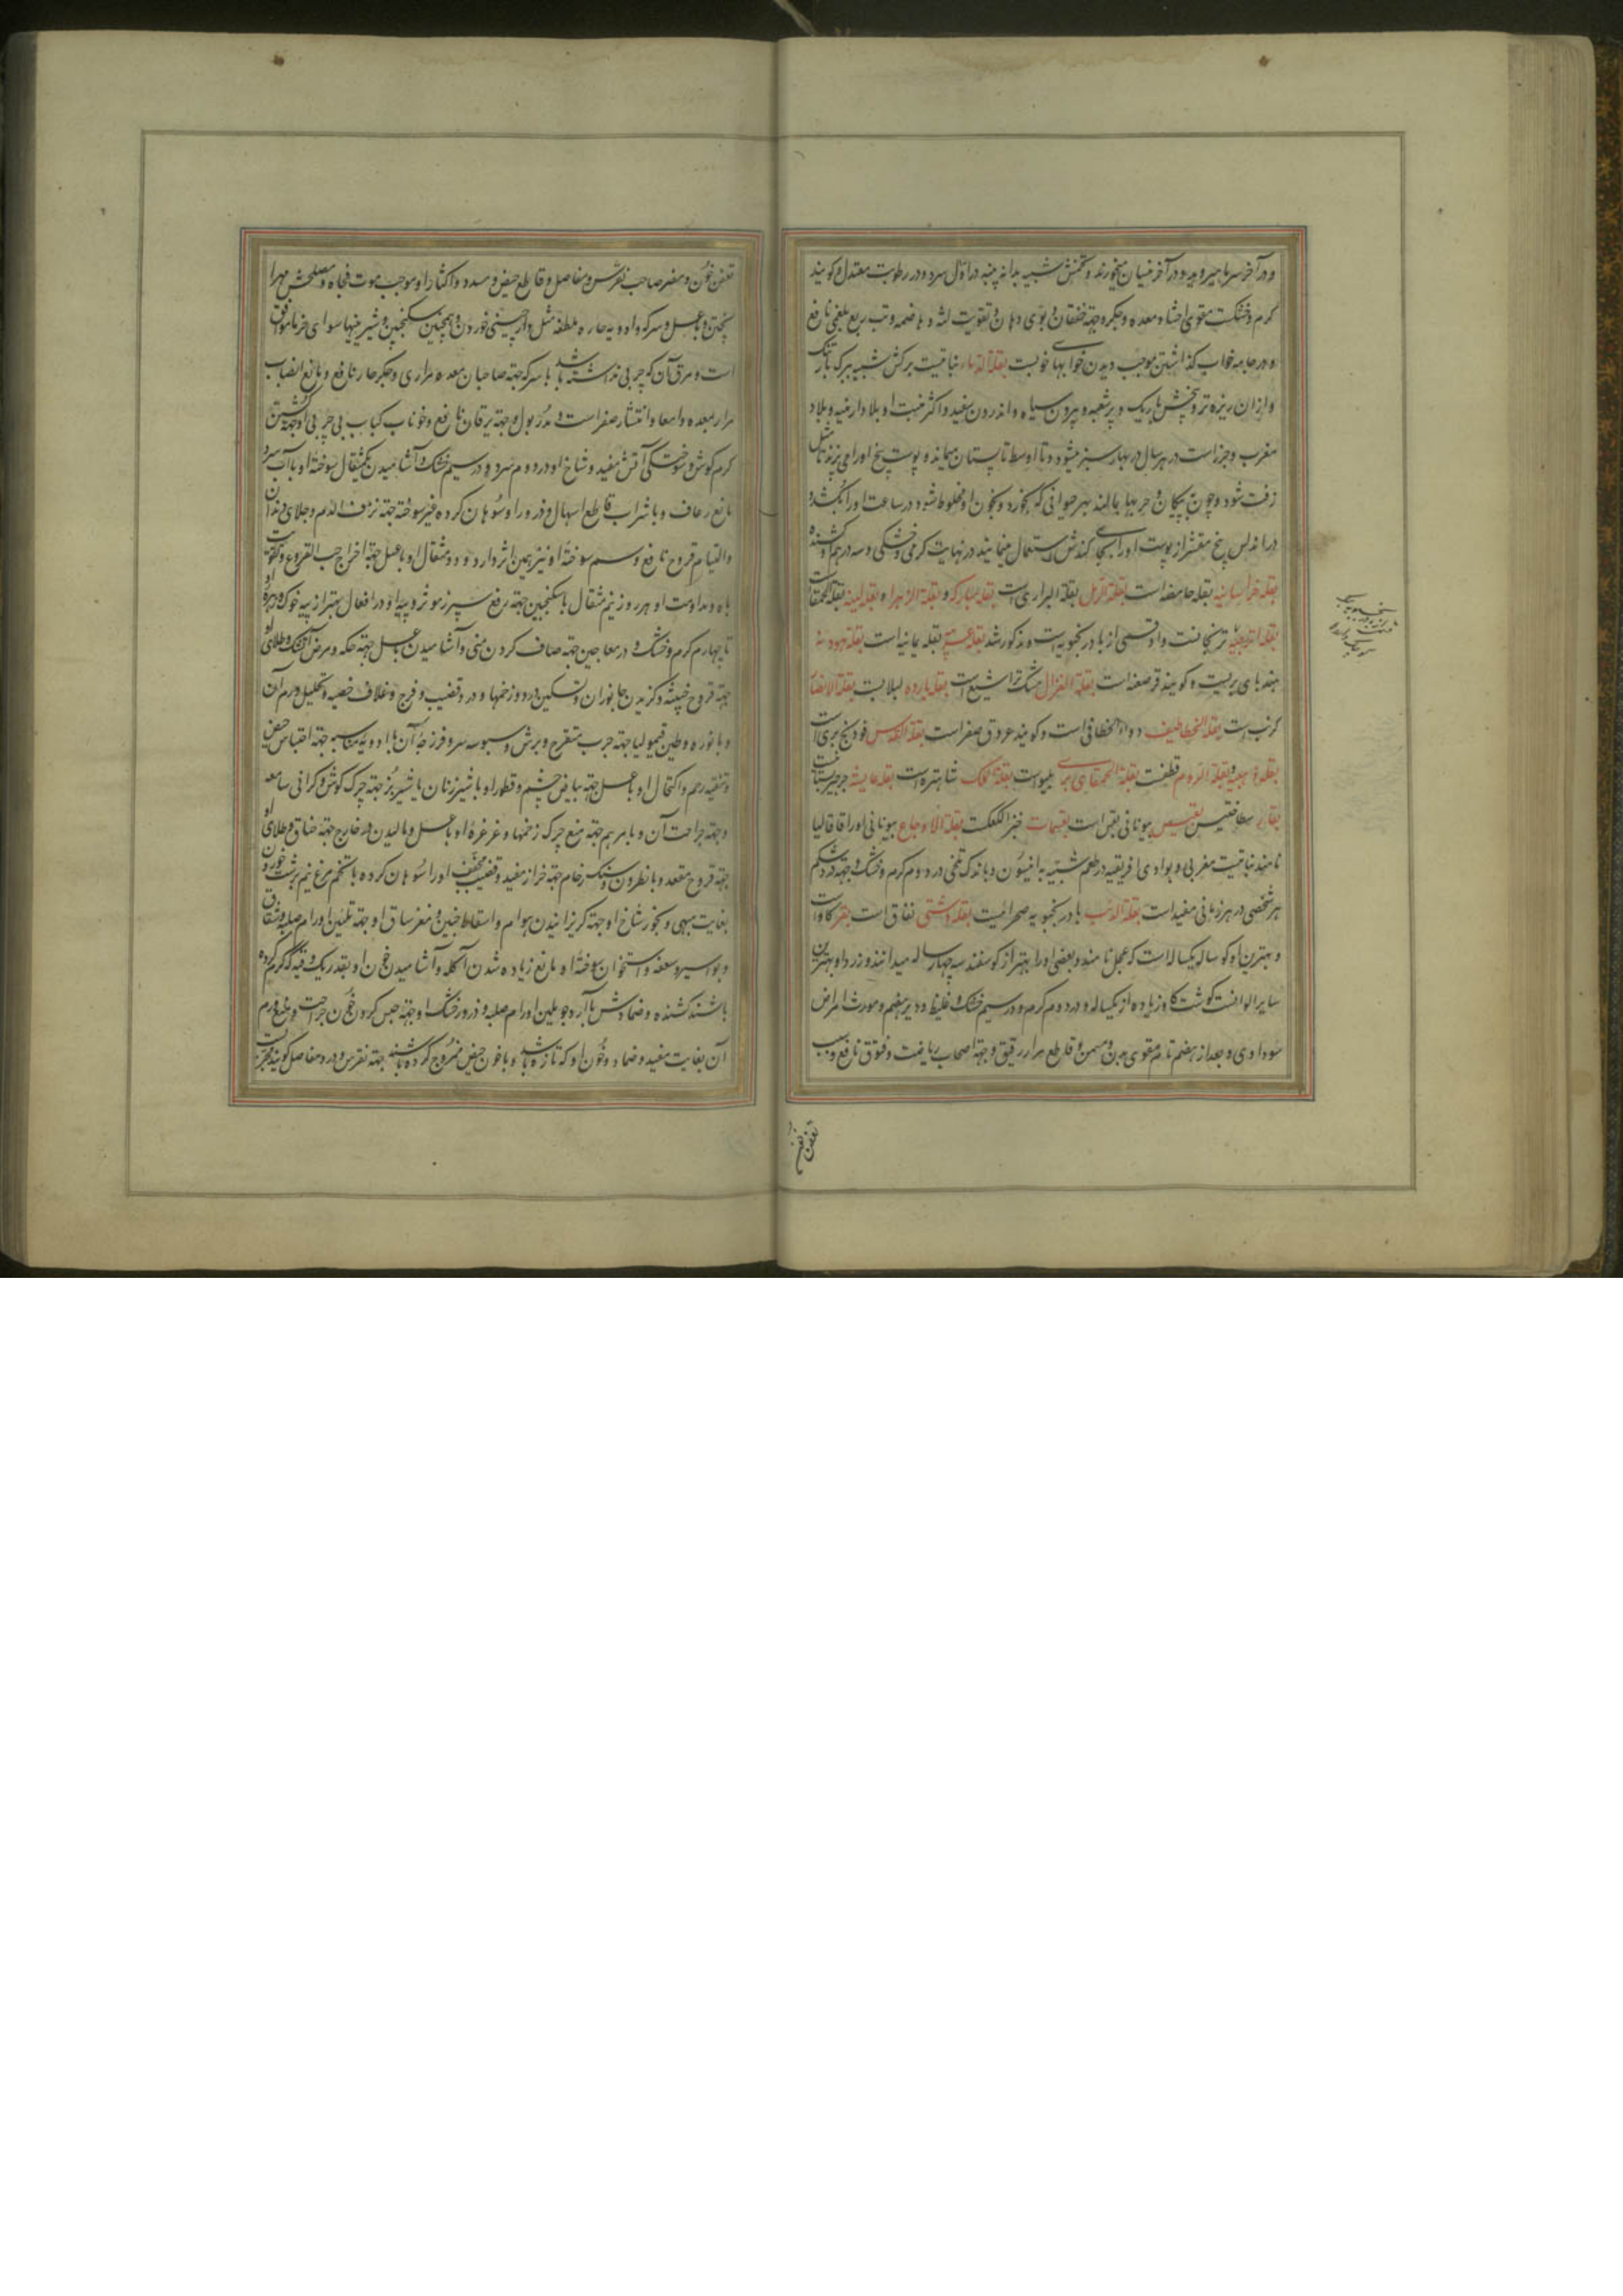 و در آخر سرما میروید و در آخر نیسان میخورند و تخمش شبیه بدانه پنبه در اول سرد و در رطوبت معتدل و گویند
گرم و خشکست مقوی احشا و معده و جگر و جهة خفقان و بوی دهان و تقویت لثه و هاضمه و تب ربع بلغمی نافع
و در جامه خواب گذاشتن موجب دیدن خوابهای خوبست بقلة الرماة نباتیست برگش شبیه ببرگ بارتنگ
و از ان ریزه‌تر و بیخش باریک و پرشعبه و بیرون سیاه و اندرون سفید و اکثر منبت او بلاد ارمنیه و بلاد
مغرب و جزر است در هر سال در بهار سبز میشود و تا اواسط تابستان میماند و پوست بیخ او را می‌پزند تا مثل
زفت شود و چون بر پیکان و حربها بمالند بهر حیوانی که بخورد و بخون او مخلوط شود در ساعت او را بکشد و
در اندلس بیخ مقشر از پوست او را بجای کندش استعمال مینمایند در نهایت گرمی و خشکی و سه درهم او کشنده
بقله خراسانیه بقله حامضه است بقلة الرمل بقلة البراری است بقله مبارکه و بقلة الزهراء و بقله لینه بقلة الحمقا است
بقلة اترجیه ترنجانست و او قسمی از بادرنجبویه است و مذکور شد بقله عربیه بقله یمانیه است بقله یهودیه
هندبای بریست و گویند قرصعنه است بقلة الغزال مشکطرامشیع است بقله بارده لبلابست بقلة الانصار
کرنب است بقلة الخطاطیف دواء الخطافی است و گویند عروق صفر است بقلة القدس فودنج بری است
بقله ذهبیه و بقلة الروم قطفست بقلة الحمقای بری یتوع است بقلة الملک شاهتره است بقله عایشه جرجیر است
بقار سطاخنیس بقسیس بیونانی بقس است بقسمات خبز الکعکست بقلة الاوجاع بیونانی او را قاقالیا
نامند نباتیست مغربی و بوادی افریقیه در طعم شبیه به انیسون و باندک تلخی در دوم گرم و خشک و جهة درد شکم
هر شخصی در هر زمانی مفید است بقلة الذئب بادرنجبویه صحرائیست بقله دشتی نفاق است بقر گاو است
و بهترین او گوساله یکساله است که عجل نامند و بعضی او را بهتر از گوسفند سه چهار ساله میدانند و زرد او بهترین
سایر الوانست گوشت گاو زیاده از یکساله در دوم گرم و در سیم خشک و غلیظ و دیرهضم و مورث امراض
سوداوی و بعد از هضم تام مقوی بدن و مسمن و قاطع مرار رقیق و جهة اصحاب ریاضت و فتوق نافع و سبب
تعفن خون
تعفن خون و مضر صاحب نقرس و مفاصل و قاطع حیض و مسدد و اکثار او موجب موت فجاه و مصلحش مهرا
پختن و با عسل و سرکه و ادویه حاره ملطفه مثل دارچینی خوردن و همچنین سکنجبین و شیرینیها سوای خرما موافق
است و مرق آن که چربی نداشته باشد با سرکه جهة صاحبان معده مراری و جگر حار نافع و مانع انصباب
مرار بمعده و امعا و انتشار صفراست و مدر بول و جهة یرقان نافع و خوناب کباب بی چربی او جهة کشتن
کرم گوش و سوختگی آتش مفید و شاخ او در دوم سرد و در سیم خشک و آشامیدن یکمثقال سوخته او با آب سرد
مانع رعاف و با شراب قاطع اسهال و ذرور او سوهان کرده غیر سوخته جهة نزف الدم و جلای دندان
و التیام قروح نافع و سم سوخته او نیز همین اثر دارد و دو مثقال او با عسل جهة اخراج حب القرع و تقویت
باه و مداومت او هر روز نیم مثقال با سکنجبین جهة رفع سپرز موثر و پیه او در افعال بهتر از پیه خوک و زهره او
تا چهارم گرم و خشک و در معاجین جهة صاف کردن منی و آشامیدن با عسل جهة حکه و مرض آتشک و طلای او
جهة قروح خبیثه و گزیدن جانوران و تسکین درد و زخمها و درد قضیب و فرج و غلاف خصیه و تحلیل ورم آن
و با نوره و طین قیمولیا جهة جرب متقرح و برش و سبوسه سر و فرزجه آن با ادویه مناسبه جهة احتباس حیض
و تنقیه رحم و اکتحال او با عسل جهة بیاض چشم و قطور او با شیر زنان یا شیر بز جهة چرک گوش و گرانی سامعه
و جهة جراحت آن و با مرهم جهة منع چرک زخمها و غرغره او با عسل و مالیدن در خارج جهة خناق و طلای او
جهة قروح مقعد و با نطرون و سنگ رخام جهة حزاز مفید و قضیب مجفف او را سوهان کرده با تخم مرغ نیم برشت خوردن
بغایت مبهی و بخور شاخ او جهة گریزانیدن هوام و اسقاط جنین و مغز ساق او جهة تلیین اورام صلبه و شقاق
و بواسیر و سعفه و استخوان سوخته او مانع زیاده شدن آکله و آشامیدن خون او بقدر یک وقیه که گرم کرده
باشند کشنده و ضمادش با آرد جو ملین اورام صلبه و ذرور خشک او جهة حبس کردن خون جراحت و منع ورم
آن بغایت مفید و ضماد و خون او که تازه باشد و با خون حیض ممزوج کرده باشند جهة نقرس و درد مفاصل گویند مجربست